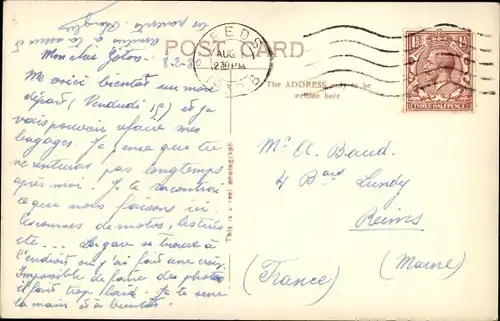 LEEDS
AUG
2 30 PM
POST CARD
The ADDRESS only to be
written here
THREE HALFPENCE
This is a real photograph
8-8-30
Mon cher
Me voici bientôt un mon
départ (Vendredi 15) et je
vais pouvoir refaire mes
bagages. Je pense que tu
ne rentreras pas longtemps
après moi. Je te raconterai
ce que nous faisons ici,
les courses de motos, les
etc... La gare se trouve à
l'endroit où j'ai fait une croix
Impossible de faire des photos
il fait trop laid. Je te serre
la main à bientôt.
Mr A. Baud.
4 Bard Lundy
Reims
(Marne)
(France)